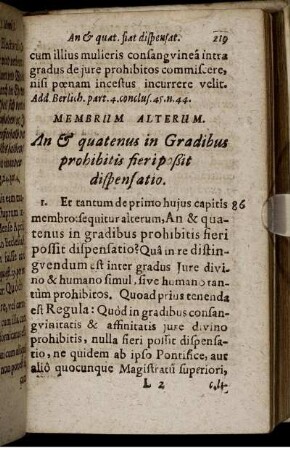 An & quat. fiat dispensat. 219
cum illius mulieris consangvineâ intra
gradus de jure prohibitos commiscere,
nisi pœnam incestus incurrere velit.
Add. Berlich. part. 4. conclus. 45. n. 44.
MEMBRUM ALTERUM.
An & quatenus in Gradibus
prohibitis fieri poßit
dispensatio.
1. Et tantum de primo hujus capitis 86
membro: sequitur alterum, An & qua-
tenus in gradibus prohibitis fieri
possit dispensatio? Quâ in re distin-
gvendum est inter gradus Jure divi-
no & humano simul, sive humano tan-
tùm prohibitos. Quoad prius tenenda
est Regula: Quòd in gradibus consan-
gvinitatis & affinitatis jure divino
prohibitis, nulla fieri possit dispensa-
tio, ne quidem ab ipso Pontifice, aut
aliò quocunque Magistratu superiori,
L 2